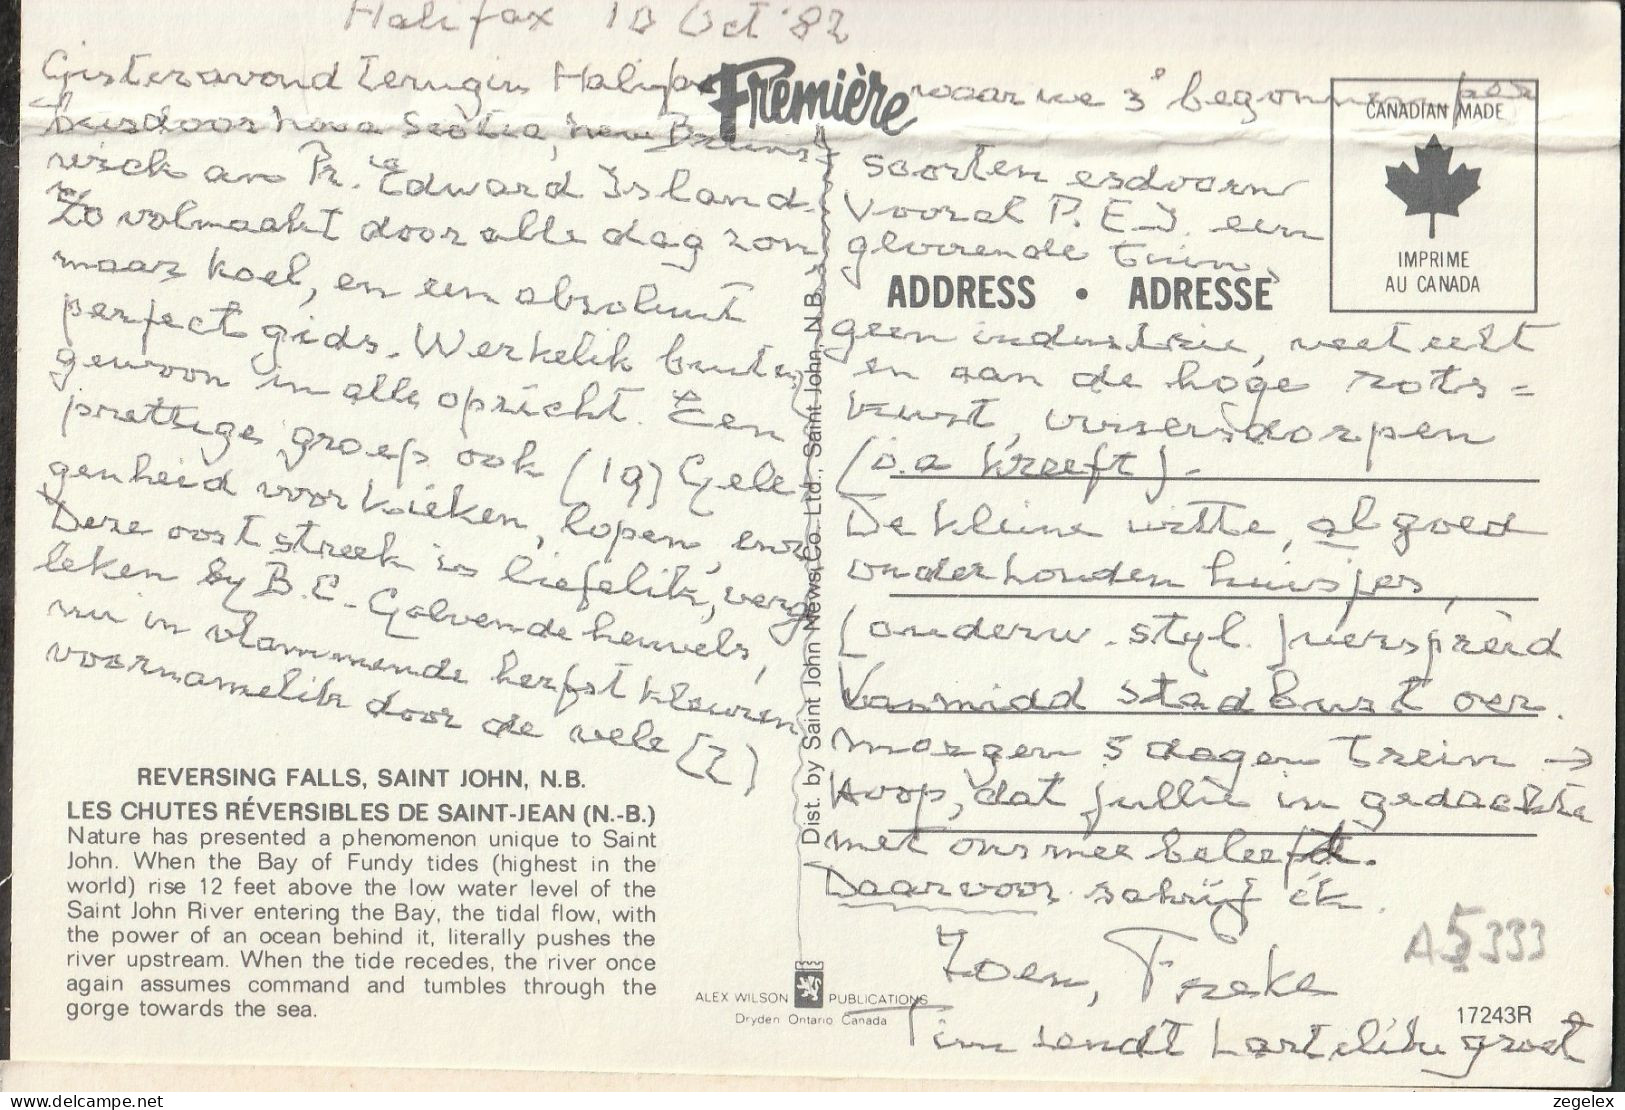 Halifax 10 Oct '82
Gisteravond terug in Halifax
waar we 3e begonnen per
Première
bus door Nova Scotia, New Bruns-
wick an Pr. Edward Island.
Zo volmaakt door alle dag zon
maar koel, en een absoluut
perfect gids. Werkelik buiten
gewoon in alle opzicht. Een
prettige groep ook (19) Gele-
genheid voor kieken, lopen, enz
Deze ooststreek is liefelik, verge
leken by B.C. Golvende heuvels,
nu in vlammende herfstkleuren
voornamelik door de vele (2)
CANADIAN MADE
IMPRIME
AU CANADA
soorten esdoorn
Vooral P.E.I. een
gloeiende tuin,
ADDRESS • ADRESSE
geen industrie, veeteelt
en aan de hoge rots-
kust, vissersdorpen
(o.a kreeft).
De kleine witte, al goed
onderhouden huisjes,
(ouderw. styl.) verspreid
Vanmidd stad bust oer.
morgen 5 dagen trein →
Hoop, dat jullie in gedachte
met ons mee beleefdt.
Daarvoor schrijf ik.
Zoen, Freke
Tim zendt hartelike groet
A5333
REVERSING FALLS, SAINT JOHN, N.B.
LES CHUTES RÉVERSIBLES DE SAINT-JEAN (N.-B.)
Nature has presented a phenomenon unique to Saint
John. When the Bay of Fundy tides (highest in the
world) rise 12 feet above the low water level of the
Saint John River entering the Bay, the tidal flow, with
the power of an ocean behind it, literally pushes the
river upstream. When the tide recedes, the river once
again assumes command and tumbles through the
gorge towards the sea.
Dist. by Saint John News Co. Ltd., Saint John, N.B.
ALEX WILSON PUBLICATIONS
Dryden Ontario Canada
17243R
www.delcampe.net
zegelex